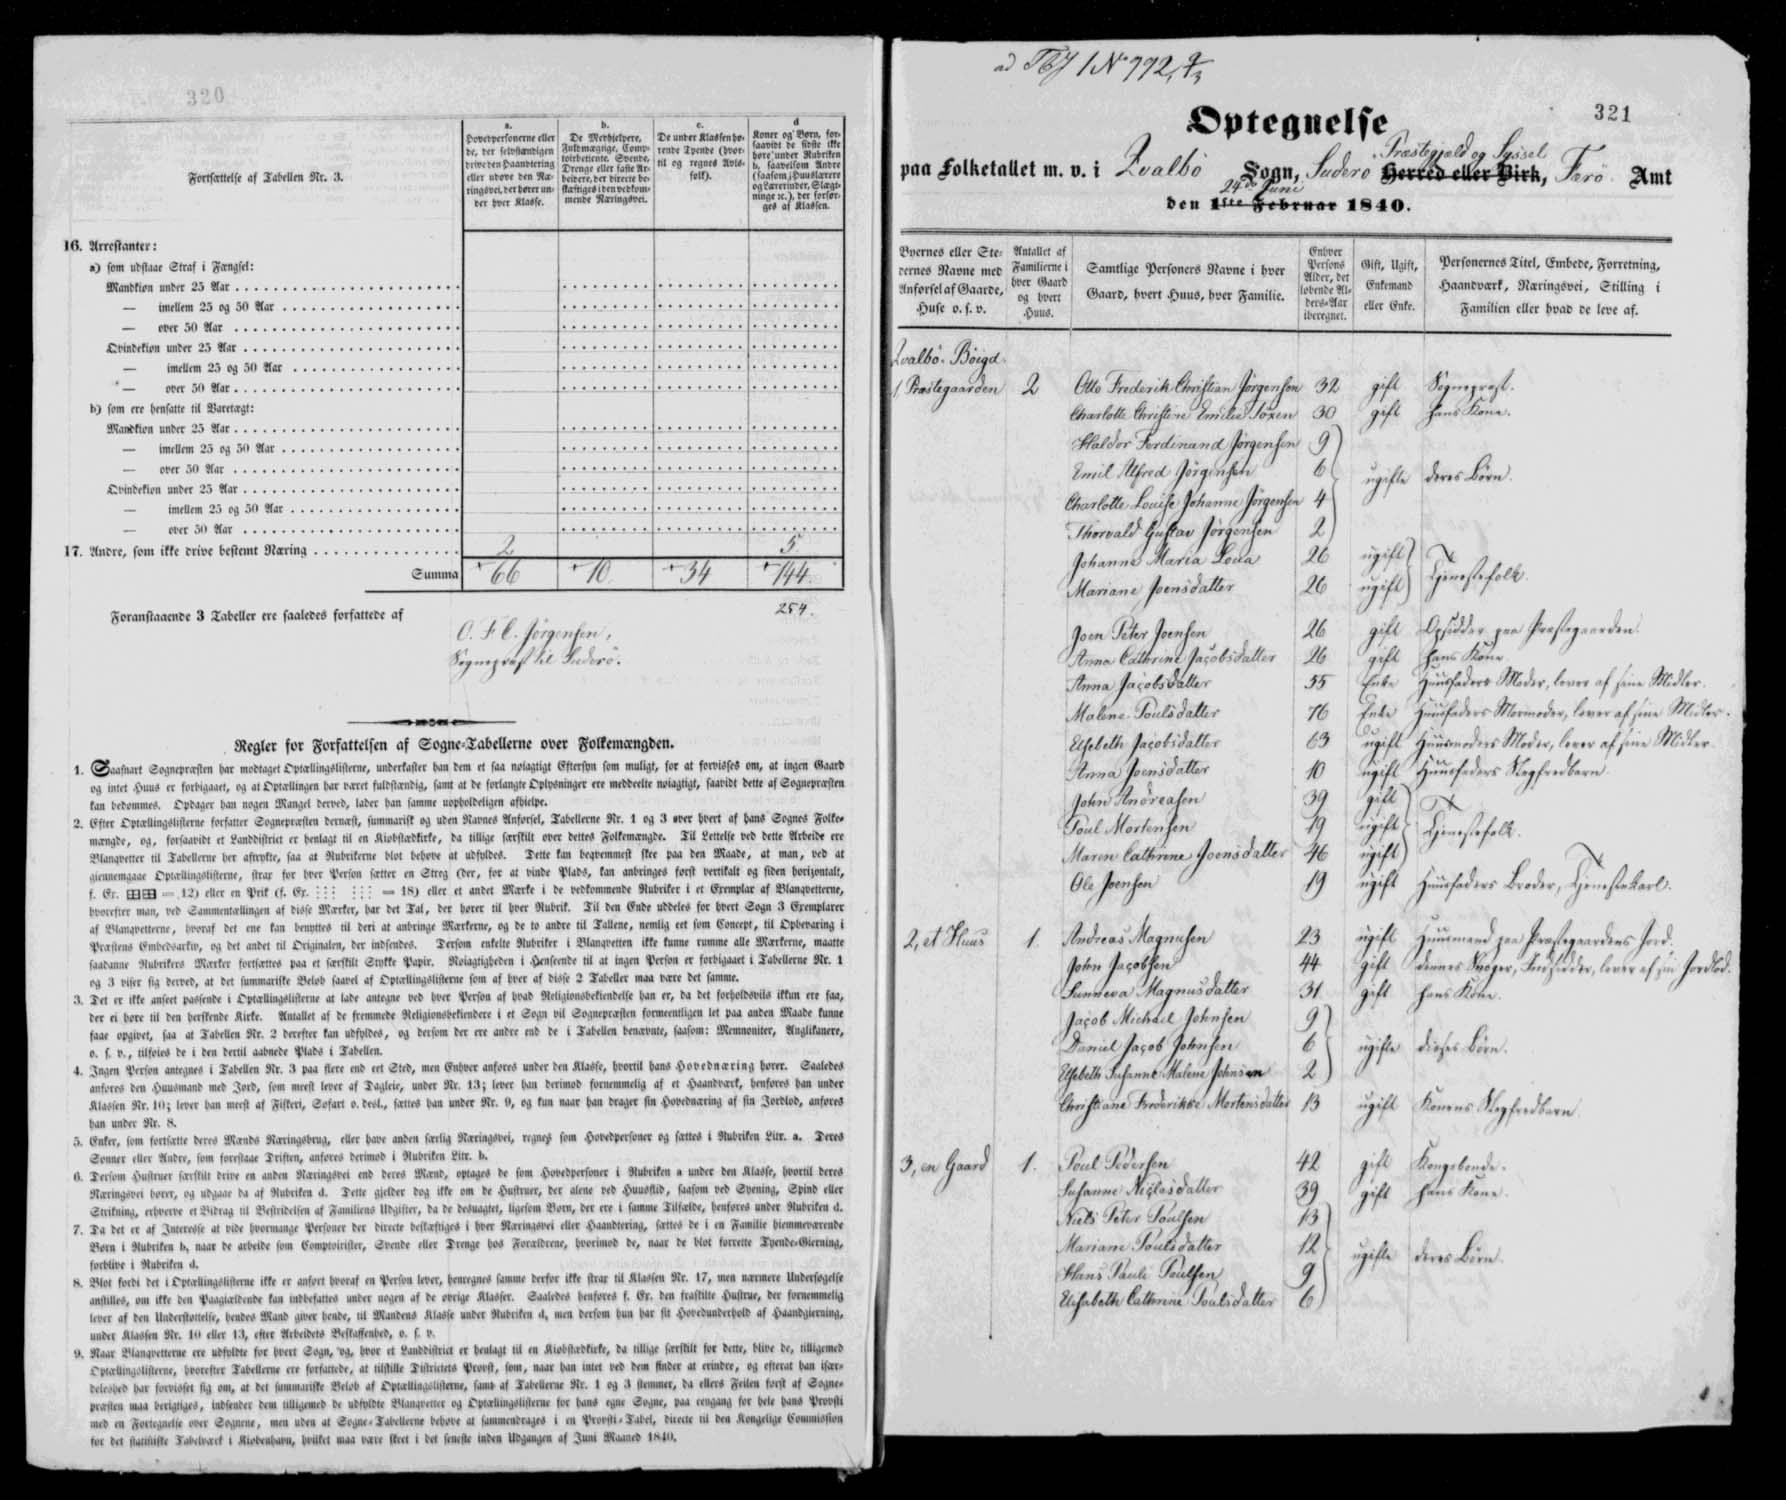 320
Fortsættelse af Tabellen Nr. 3.
a. Hovedpersonerne eller de, der selvstændigen drive den Haandtering eller udøve den Næringsvei, der hører under hver Klasse.
b. De Medhjelpere, Fuldmægtige, Comptoirbetiente, Svende, Drenge eller faste Arbeidere, der directe beskæftiges i den vedkommende Næringsvei.
c. De under Klassen hørende Tyende (hvortil og regnes Avlsfolk).
d Koner og Børn, forsaavidt de sidste ikke høre under Rubriken b, saavelsom Andre (saasom Huuslærere og Lærerinder, Slægtninge ꝛc.), der forsørges af Klassen.
16. Arrestanter:
a) som udstaae Straf i Fængsel:
Mandkiøn under 25 Aar
— imellem 25 og 50 Aar
— over 50 Aar
Qvindekiøn under 25 Aar
— imellem 25 og 50 Aar
— over 50 Aar
b) som ere hensatte til Varetægt:
Mandkiøn under 25 Aar
— imellem 25 og 50 Aar
— over 50 Aar
Qvindekiøn under 25 Aar
— imellem 25 og 50 Aar
— over 50 Aar
17. Andre, som ikke drive bestemt Næring 2 5.
Summa 66 10. 34 144.
254.
Foranstaaende 3 Tabeller ere saaledes forfattede af
O. F. C. Jørgensen,
Sognepræst til Suderö.
Regler for Forfattelsen af Sogne-Tabellerne over Folkemængden.
1. Saasnart Sognepræsten har modtaget Optællingslisterne, underkaster han dem et saa nøiagtigt Eftersyn som muligt, for at forvisses om, at ingen Gaard
og intet Huus er forbigaaet, og at Optællingen har været fuldstændig, samt at de forlangte Oplysninger ere meddeelte nøiagtigt, saavidt dette af Sognepræsten
kan bedømmes. Opdager han nogen Mangel derved, lader han samme uopholdeligen afhielpe.
2. Efter Optællingslisterne forfatter Sognepræsten dernæst, summarisk og uden Navnes Anførsel, Tabellerne Nr. 1 og 3 over hvert af hans Sognes Folke-
mængde, og, forsaavidt et Landdistrict er henlagt til en Kiøbstædkirke, da tillige særskilt over dettes Folkemængde. Til Lettelse ved dette Arbeide ere
Blanqvetter til Tabellerne her aftrykte, saa at Rubrikerne blot behøve at udfyldes. Dette kan beqvemmest skee paa den Maade, at man, ved at
giennemgaae Optællingslisterne, strax for hver Person sætter en Streg (der, for at vinde Plads, kan anbringes først vertikalt og siden horizontalt,
f. Ex. = 12) eller en Prik (f. Ex. = 18) eller et andet Mærke i de vedkommende Rubriker i et Exemplar af Blanqvetterne,
hvorefter man, ved Sammentællingen af disse Mærker, har det Tal, der hører til hver Rubrik. Til den Ende uddeles for hvert Sogn 3 Exemplarer
af Blanqvetterne, hvoraf det ene kan benyttes til deri at anbringe Mærkerne, og de to andre til Tallene, nemlig eet som Concept, til Opbevaring i
Præstens Embedsarkiv, og det andet til Originalen, der indsendes. Dersom enkelte Rubriker i Blanqvetten ikke kunne rumme alle Mærkerne, maatte
saadanne Rubrikers Mærker fortsættes paa et særskilt Stykke Papir. Nøiagtigheden i Henseende til at ingen Person er forbigaaet i Tabellerne Nr. 1
og 3 viser sig derved, at det summariske Beløb saavel af Optællingslisterne som af hver af disse 2 Tabeller maa være det samme.
3. Det er ikke anseet passende i Optællingslisterne at lade antegne ved hver Person af hvad Religionsbekiendelse han er, da det forholdsviis ikkun ere faa,
der ei høre til den herskende Kirke. Antallet af de fremmede Religionsbekiendere i et Sogn vil Sognepræsten formeentligen let paa anden Maade kunne
faae opgivet, saa at Tabellen Nr. 2 derefter kan udfyldes, og dersom der ere andre end de i Tabellen benævnte, saasom: Mennoniter, Anglikanere,
o. s. v., tilføies de i den dertil aabnede Plads i Tabellen.
4. Ingen Person antegnes i Tabellen Nr. 3 paa flere end eet Sted, men Enhver anføres under den Klasse, hvortil hans Hovednæring hører. Saaledes
anføres den Huusmand med Jord, som meest lever af Dagleie, under Nr. 13; lever han derimod fornemmelig af et Haandværk, henføres han under
Klassen Nr. 10; lever han meest af Fiskeri, Søfart o. desl., sættes han under Nr. 9, og kun naar han drager sin Hovednæring af sin Jordlod, anføres
han under Nr. 8.
5. Enker, som fortsætte deres Mænds Næringsbrug, eller have anden særlig Næringsvei, regnes som Hovedpersoner og sættes i Rubriken Litr. a. Deres
Sønner eller Andre, som forestaae Driften, anføres derimod i Rubriken Litr. b.
6. Dersom Hustruer særskilt drive en anden Næringsvei end deres Mænd, optages de som Hovedpersoner i Rubriken a under den Klasse, hvortil deres
Næringsvei hører, og udgaae da af Rubriken d. Dette gjelder dog ikke om de Hustruer, der alene ved Huusflid, saasom ved Syening, Spind eller
Strikning, erhverve et Bidrag til Bestridelsen af Familiens Udgifter, da de desuagtet, ligesom Børn, der ere i samme Tilfælde, henføres under Rubriken d.
7. Da det er af Interesse at vide hvormange Personer der directe beskæftiges i hver Næringsvei eller Haandtering, sættes de i en Familie hiemmeværende
Børn i Rubriken b, naar de arbeide som Comptoirister, Svende eller Drenge hos Forældrene, hvorimod de, naar de blot forrette Tyende-Gierning,
forblive i Rubriken d.
8. Blot fordi det i Optællingslisterne ikke er anført hvoraf en Person lever, henregnes samme derfor ikke strax til Klassen Nr. 17, men nærmere Undersøgelse
anstilles, om ikke den Paagiældende kan indbefattes under nogen af de øvrige Klasser. Saaledes henføres f. Ex. den fraskilte Hustrue, der fornemmelig
lever af den Understøttelse, hendes Mand giver hende, til Mandens Klasse under Rubriken d, men dersom hun har sit Hovedunderhold af Haandgierning,
under Klassen Nr. 10 eller 13, efter Arbeidets Beskaffenhed, o. s. v.
9. Naar Blanqvetterne ere udfyldte for hvert Sogn, og, hvor et Landdistrict er henlagt til en Kiøbstædkirke, da tillige særskilt for dette, blive de, tilligemed
Optællingslisterne, hvorefter Tabellerne ere forfattede, at tilstille Districtets Provst, som, naar han intet ved dem finder at erindre, og efterat han især-
deleshed har forvisset sig om, at det summariske Beløb af Optællingslisterne, samt af Tabellerne Nr. 1 og 3 stemmer, da ellers Feilen først af Sogne-
præsten maa berigtiges, indsender dem tilligemed de udfyldte Blanqvetter og Optællingslisterne for hans egne Sogne, paa eengang for hele hans Provsti
med en Fortegnelse over Sognene, men uden at Sogne-Tabellerne behøve at sammendrages i en Provsti-Tabel, directe til den Kongelige Commission
for det statistiske Tabelværk i Kiøbenhavn, hvilket maa være skeet i det seneste inden Udgangen af Juni Maaned 1840.
321
Optegnelse
Præstegjæld og Syssel
paa Folketallet m. v. i Qvalbö Sogn, Suderø Herred eller Birk, Færö Amt
24de Juni
den 1ste Februar 1840.
Byernes eller Stedernes Navne med Anførsel af Gaarde, Huse o. s. v.
Antallet af Familierne i hver Gaard og hvert Huus.
Samtlige Personers Navne i hver Gaard, hvert Huus, hver Familie.
Enhver Persons Alder, det løbende Alders-Aar iberegnet.
Gift, Ugift, Enkemand eller Enke.
Personernes Titel, Embede, Forretning, Haandværk, Næringsvei, Stilling i Familien eller hvad de leve af.
Qvalbö Böigd.
1, Præstegaarden 2 Otto Frederik Christian Jörgensen 32 gift Sognepræst.
Charlotte Christine Emilie 30 gift hans Kone.
Haldor Ferdinand Jörgensen 9
Emil Alfred Jörgensen 6 ugifte deres Børn.
Charlotte Louise Johanne Jörgensen 4
Thorvald Gustav Jörgensen 2
Johanne Maria 26 ugift
Mariane Joensdatter 26 ugift Tjenestefolk.
Joen Peter Joensen 26 gift Opsidder paa Præstegaarden.
Anna Cathrine Jacobsdatter 26 gift hans Kone
Anna Jacobsdatter 55 Enke Huusfaders Moder, lever af sine Midler.
Malene Poulsdatter 76 Enke Huusfaders Mormoder, lever af sine Midler.
Elsebeth Jacobsdatter 63 ugift Huusmoders Moder, lever af sine Midler.
Anna Joensdatter 10 ugift Huusfaders Slegfredbarn
John Andreasen 39 gift
Poul Mortensen 19 ugift Tjenestefolk.
Maren Cathrine Joensdatter 46 ugift
Ole Joensen 19 ugift Huusfaders Broder, Tjenestekarl.
2, et Huus 1. Andreas Magnusen 23 ugift Huusmand paa Præstegaardens Jord.
John Jacobsen 44 gift dennes Svoger, Indsidder, lever af sin Jordlod.
Sunneva Magnusdatter 31 gift hans Kone.
Jacob Michael Johnsen 9
Daniel Jacob Johnsen 6 ugifte disses Børn.
Elsebeth Susanne Malene Johnsen 2
Christiane Frederikke Mortensdatter 13 ugift Konens Slegfredbarn.
3, en Gaard 1. Poul Pedersen 42 gift Kongsbonde.
Susanne Niclasdatter 39 gift hans Kone.
Niels Peter Poulsen 13
Mariane Poulsdatter 12 ugifte deres Børn.
Hans Pauli Poulsen 9
Elisabeth Cathrine Poulsdatter 6